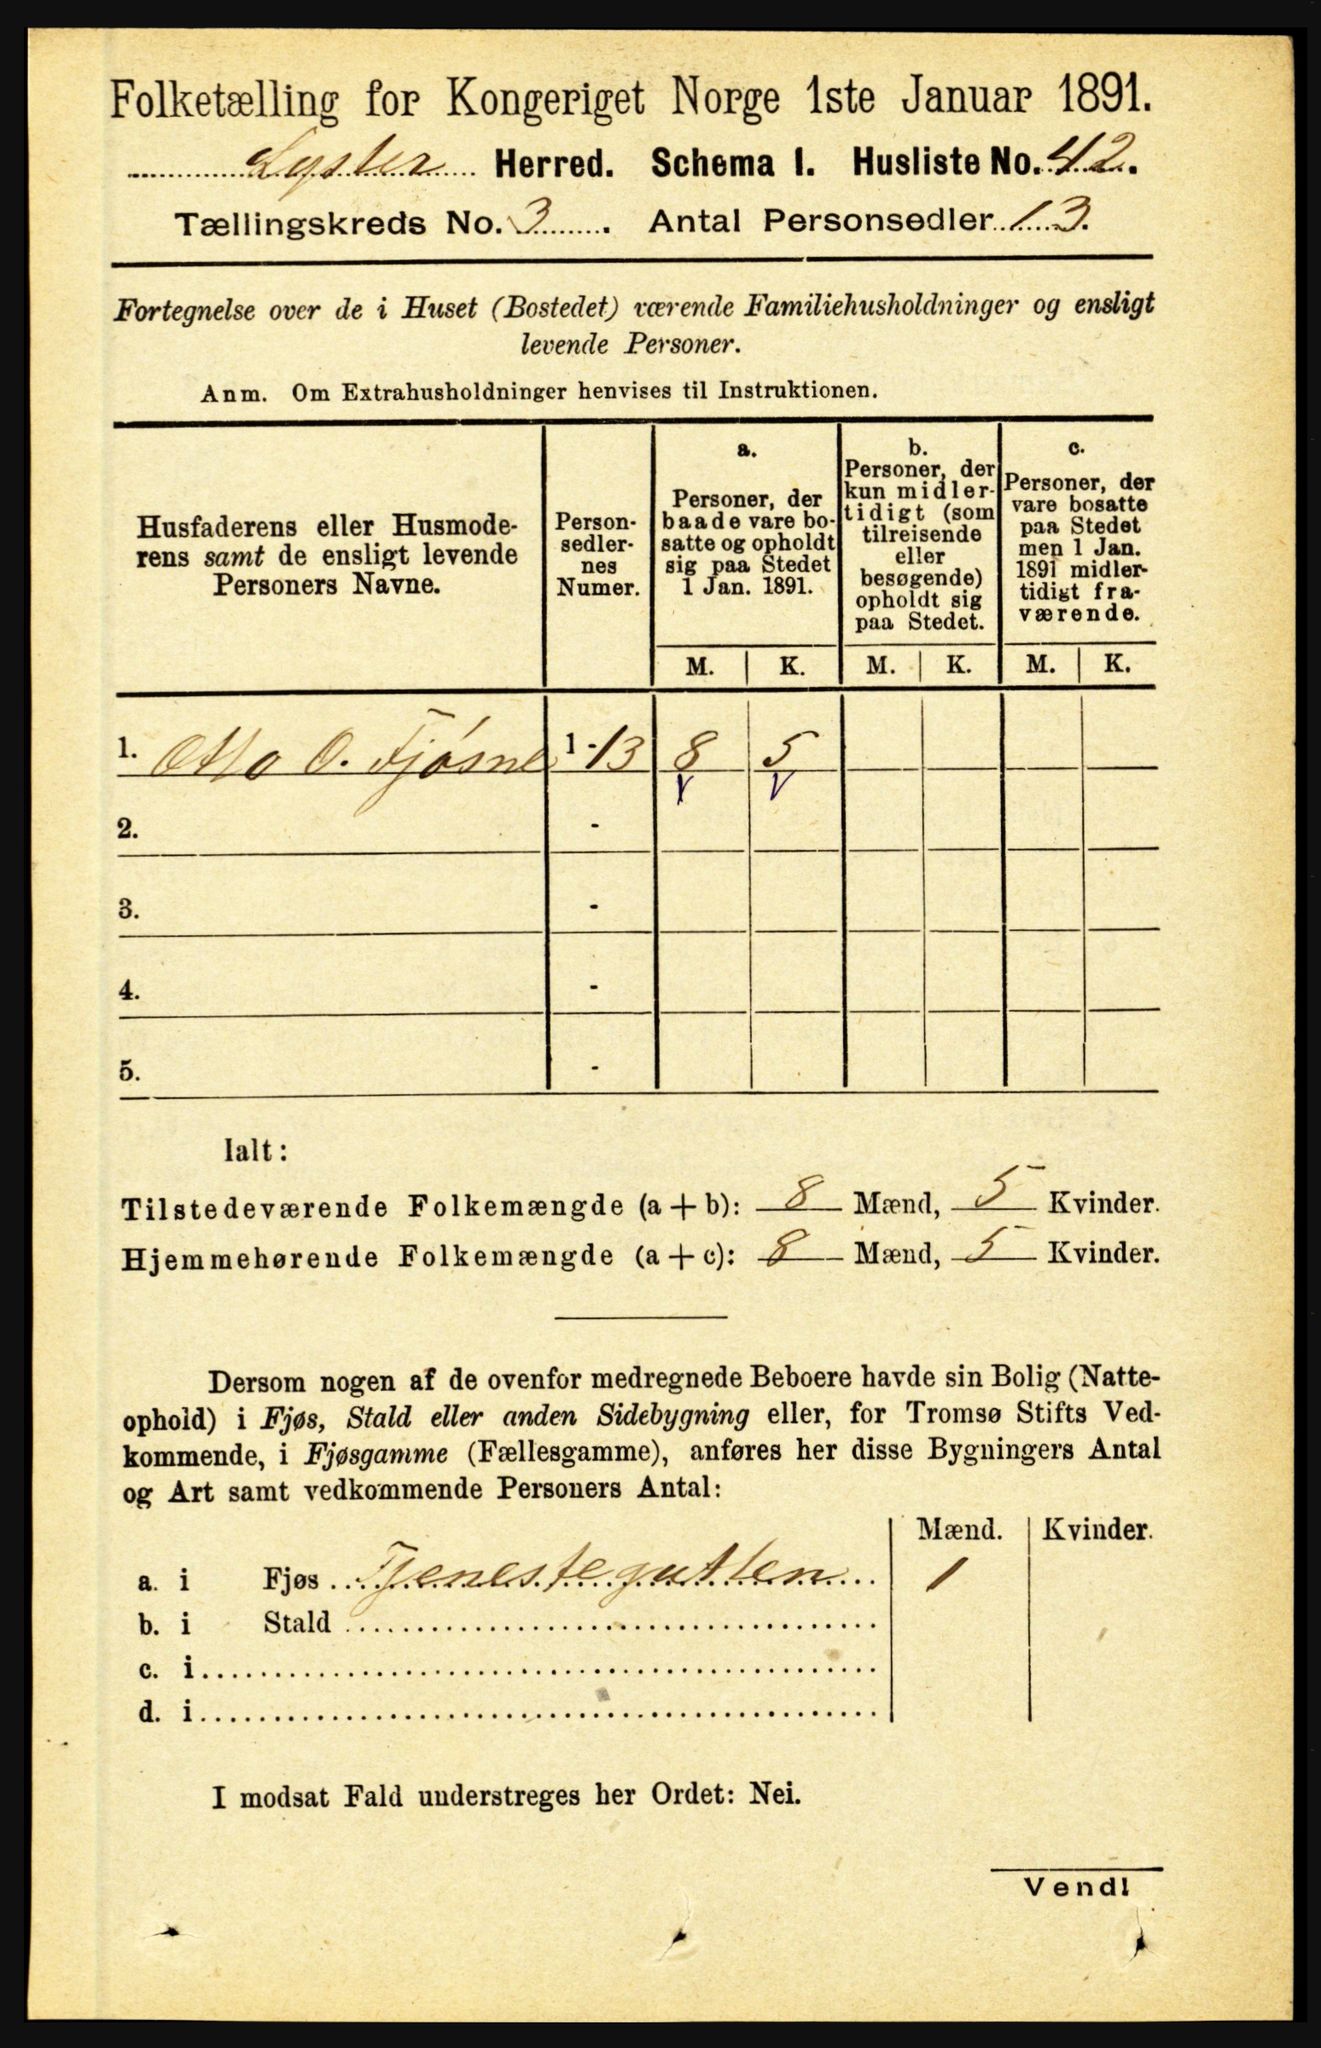 Folketælling for Kongeriget Norge 1ste Januar 1891.
Lyster Herred. Schema I. Husliste No. 42.
Tællingskreds No. 3. Antal Personsedler 13.
Fortegnelse over de i Huset (Bostedet) værende Familiehusholdninger og ensligt
levende Personer.
Anm. Om Extrahusholdninger henvises til Instruktionen.
Husfaderens eller Husmode-
rens samt de ensligt levende
Personers Navne.
Person-
sedler-
nes
Numer.
a.
Personer, der
baade vare bo-
satte og opholdt
sig paa Stedet
1 Jan. 1891.
b.
Personer, der
kun midler-
tidigt (som
tilreisende
eller
besøgende)
opholdt sig
paa Stedet.
c.
Personer, der
vare bosatte
paa Stedet
men 1 Jan.
1891 midler-
tidigt fra-
værende.
M. K. M. K. M. K.
1. Otto O. Fjøsne 1-13 8 5
2. -
3. -
4. -
5. -
Ialt:
Tilstedeværende Folkemængde (a+b): 8 Mænd, 5 Kvinder.
Hjemmehørende Folkemængde (a+c): 8 Mænd, 5 Kvinder.
Dersom nogen af de ovenfor medregnede Beboere havde sin Bolig (Natte-
ophold) i Fjøs, Stald eller anden Sidebygning eller, for Tromsø Stifts Ved-
kommende, i Fjøsgamme (Fællesgamme), anføres her disse Bygningers Antal
og Art samt vedkommende Personers Antal:
Mænd. Kvinder.
a. i Fjøs Tjenestegutten 1
b. i Stald
c. i
d. i
I modsat Fald understreges her Ordet: Nei.
Vend!